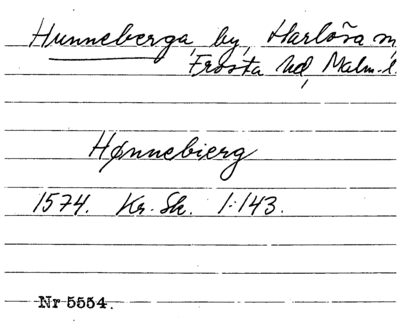 Hunneberga, by, Harlösa sn,
Frosta hd, Malm. l.
Hønnebierg
1574. Kr. Sk. 1:143.
Nr 5554.